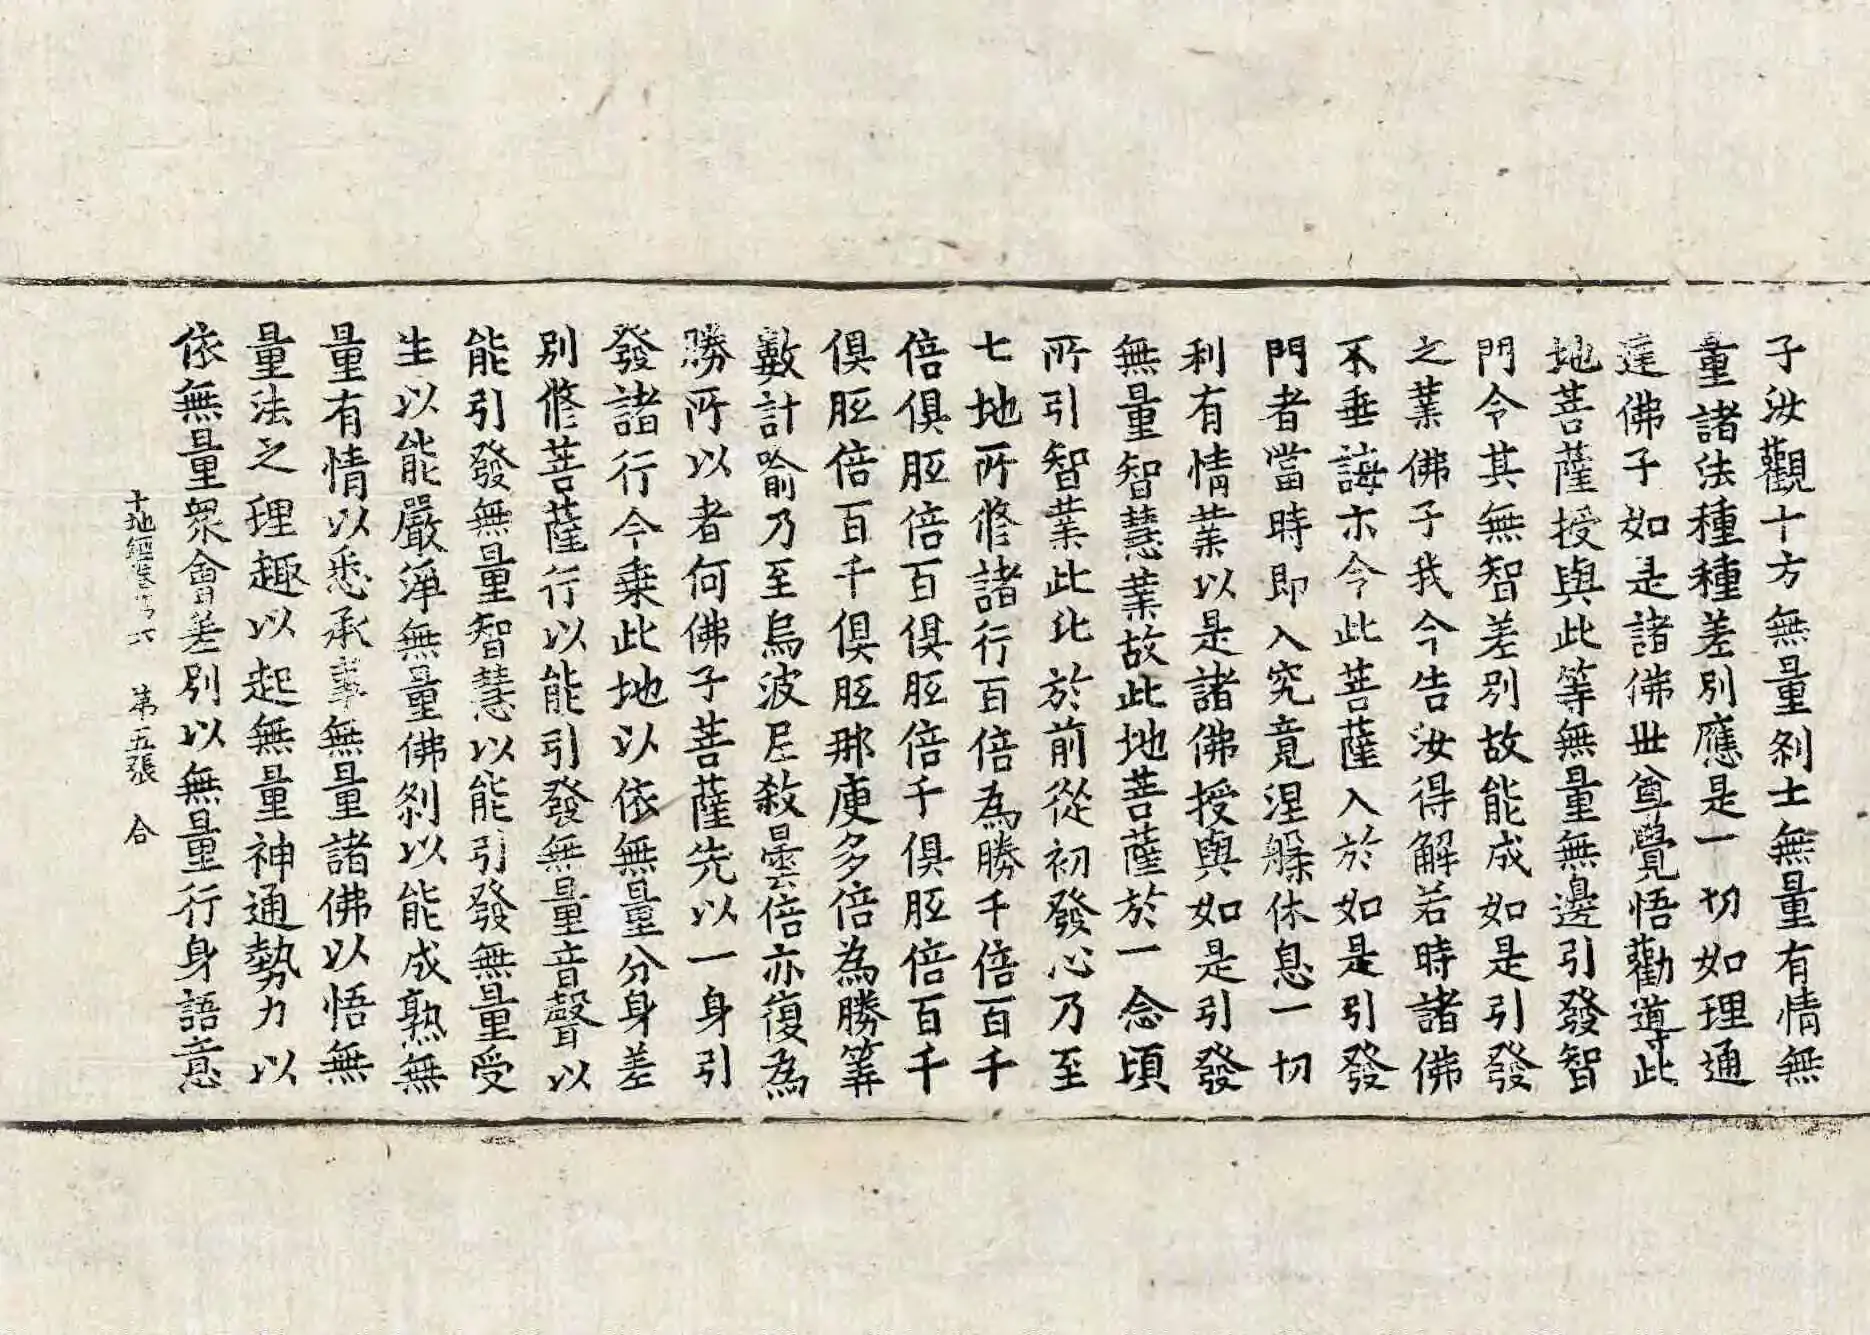 子汝觀十方無量刹土無量有情無
量諸法種種差別應是一切如理通
達佛子如是諸佛世尊覺悟勸導此
地菩薩授與此等無量無邊引發智
門令其無智差別故能成如是引發
之業佛子我今告汝得解若時諸佛
不垂誨尒令此菩薩入於如是引發
門者當時即入究竟涅躲休息一切
利有情業以是諸佛授與如是引發
無量智慧業故此地菩薩於一念頃
所引智業此比於前從初發心乃至
七地所修諸行百倍為勝千倍百千
倍俱胝倍百俱胝倍千俱胝倍百千
俱胝倍百千俱胝那庾多倍為勝筭
數計喻乃至烏波尼殺曇倍亦復為
勝所以者何佛子菩薩先以一身引
發諸行今乗此地以依無量分身差
別修菩薩行以能引發無量音聲以
能引發無量智慧以能引發無量受
生以能嚴淨無量佛刹以能成熟無
量有情以悉承事無量諸佛以悟無
量法之理趣以起無量神通勢力以
依無量衆會差別以無量行身語意
十地經卷第六 第五張 合